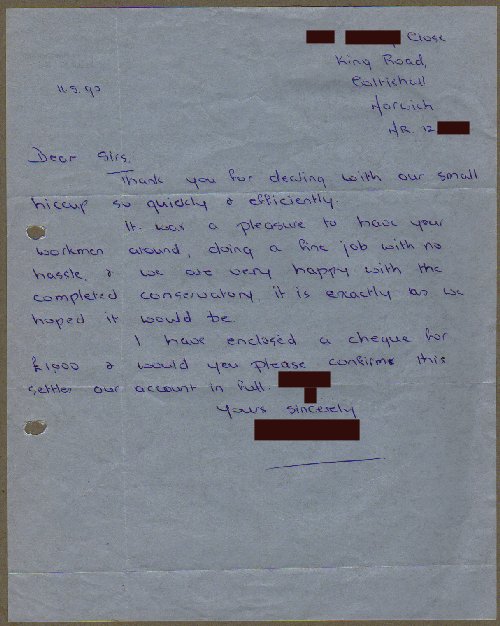 Close
King Road,
Coltishall
Norwich
NR 12
11.5.90
Dear Sirs,
Thank you for dealing with our small
hiccup so quickly & efficiently.
It was a pleasure to have your
workmen around, doing a fine job with no
hassle, & we are very happy with the
completed conservatory, it is exactly as we
hoped it would be.
I have enclosed a cheque for
£1900 & would you please confirme this
settles our account in full.
Yours sincerely